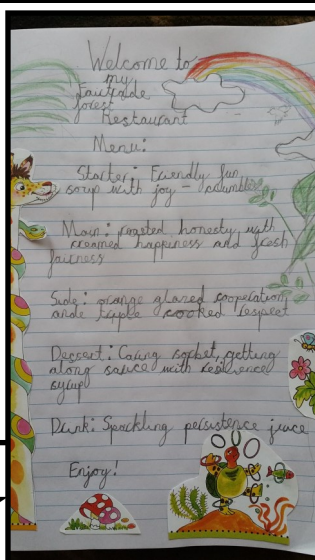 Welcome to
my
Fairtrade
forest
Restaurant
Menu:
Starter: Friendly fun
soup with joy - crumbles
Main: roasted honesty with
creamed happiness and fresh
fairness
Side: orange glazed cooperation
ande tripple cooked respect
Dessert: Caring sorbet, getting
along sauce with resilience
syrup
Drink: Sparkling persistence juice
Enjoy!